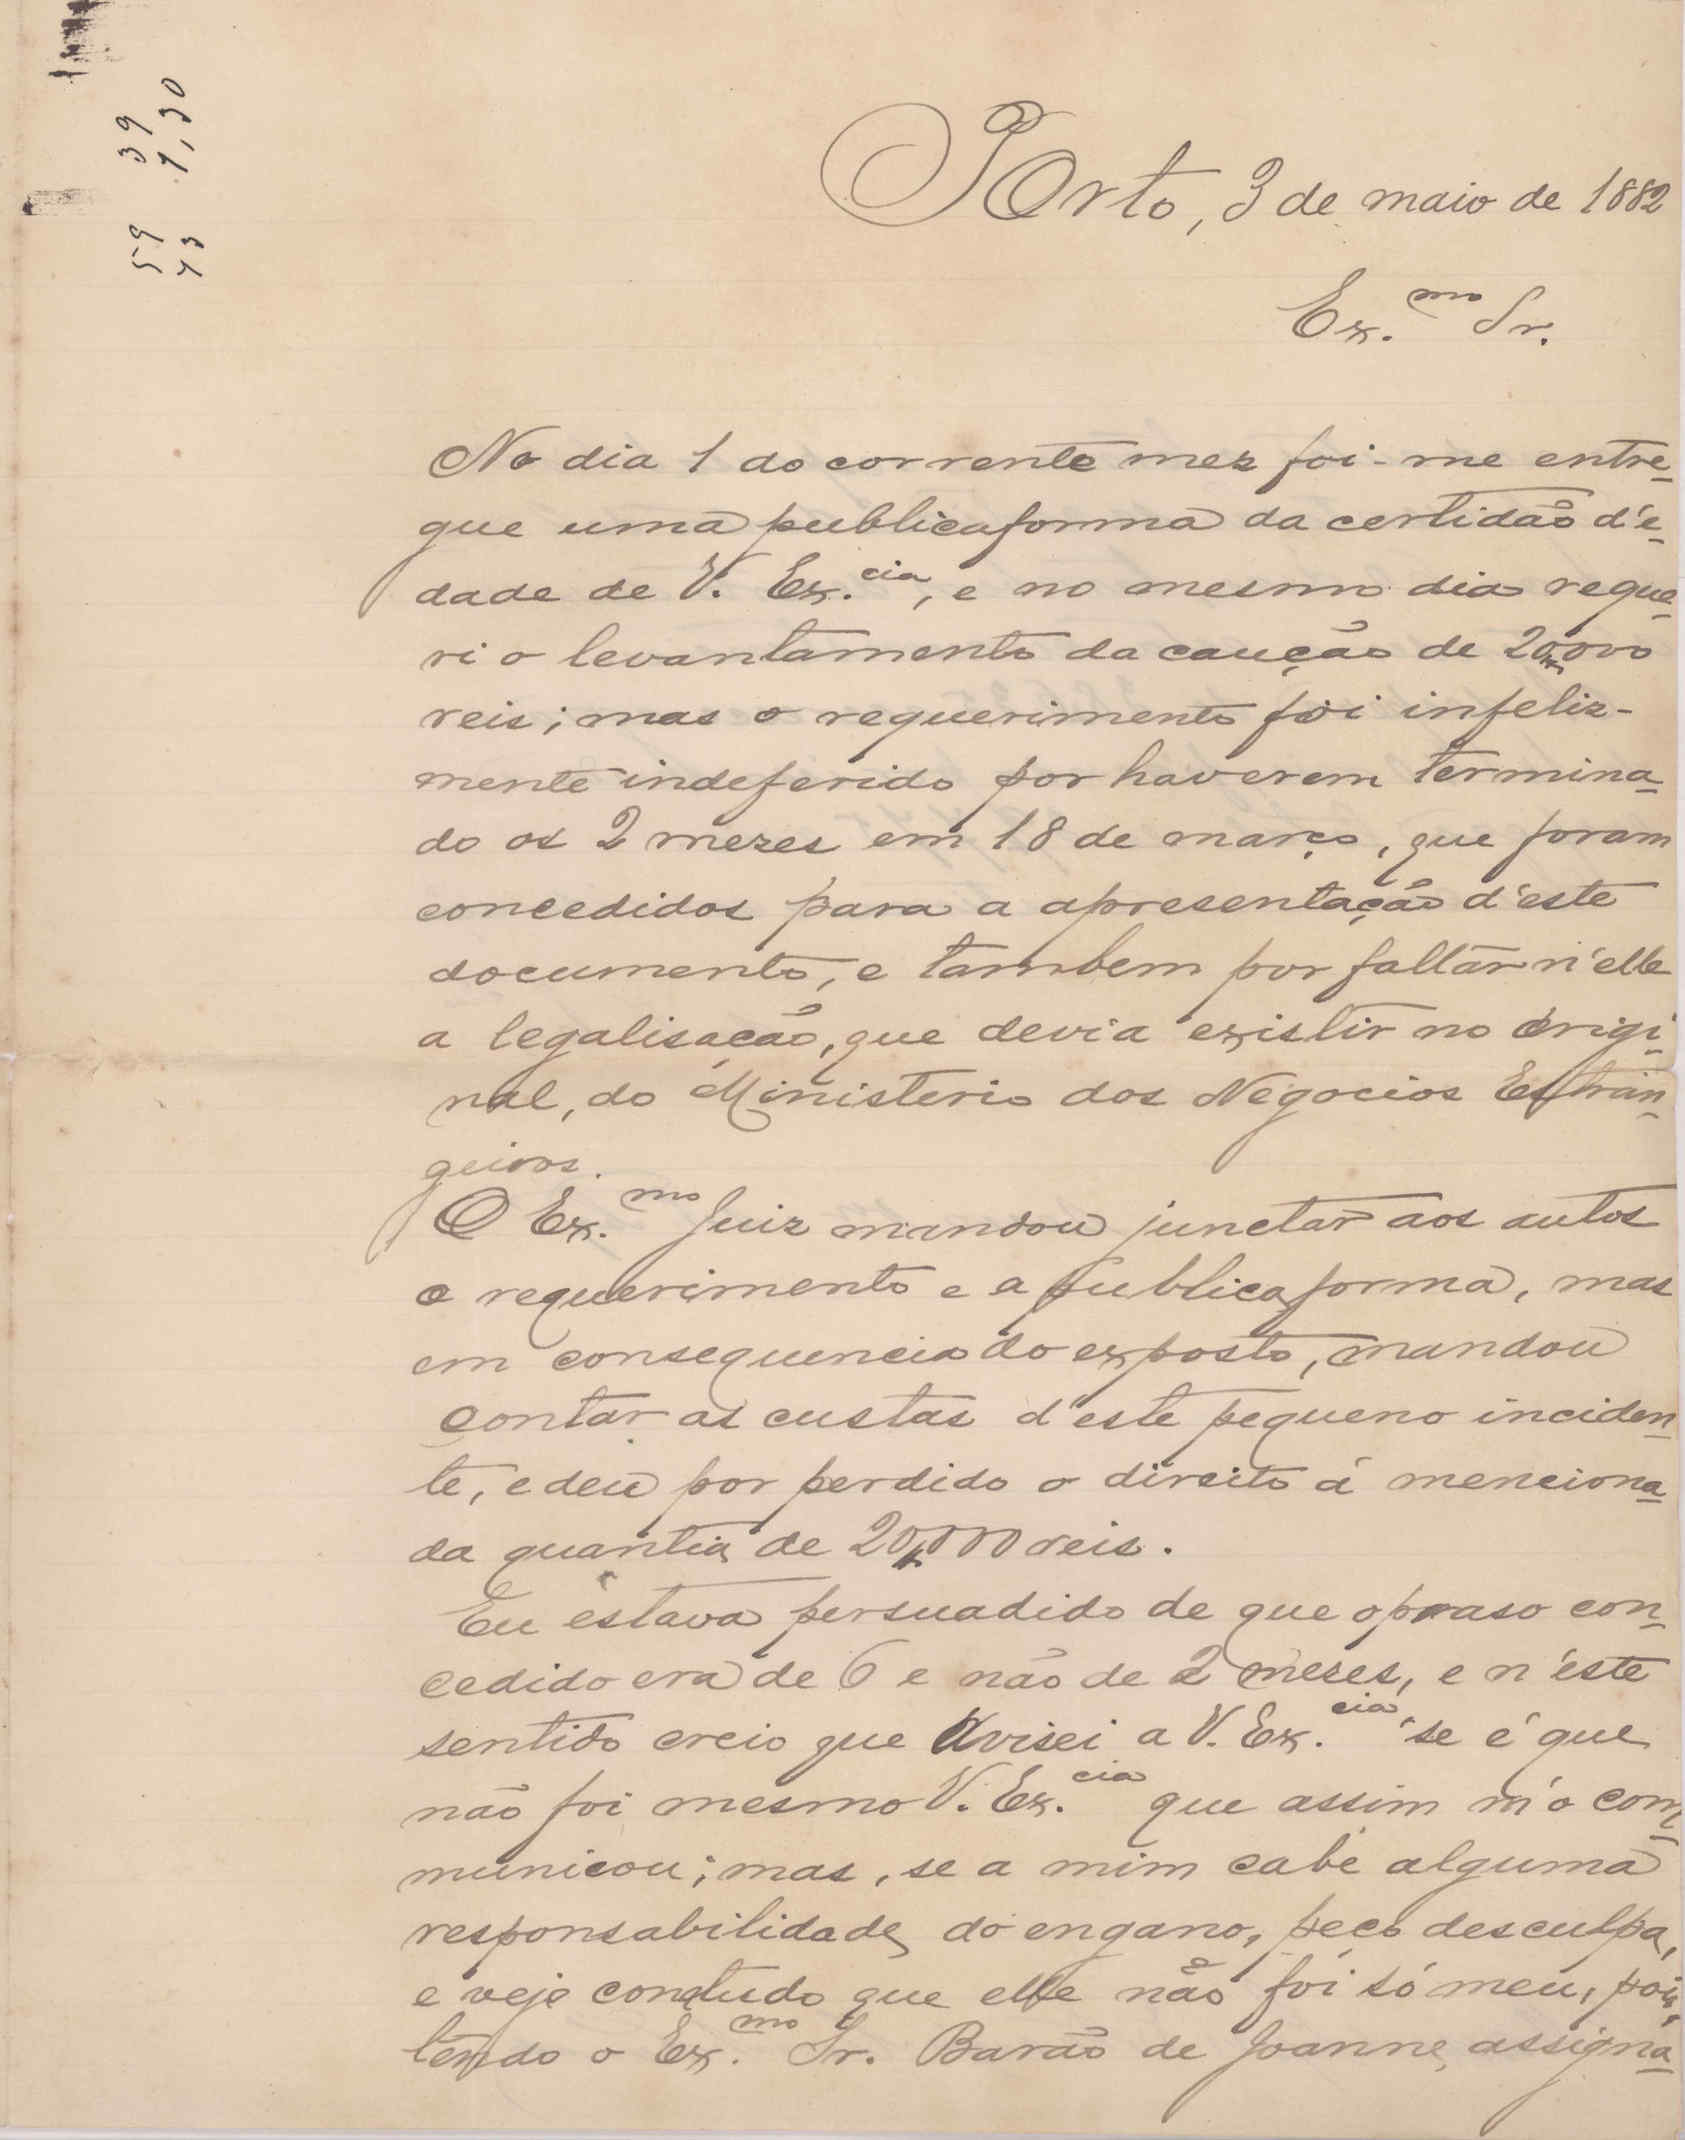 39 1,30
59 73
Porto, 3 de maio de 1882
Ex.mo Sr.
No dia 1 do corrente mez foi-me entre-
gue uma publicaforma da certidão d'e-
dade de V. Ex.cia, e no mesmo dia reque-
ri o levantamento da caução de 20$000
reis; mas o requerimento foi infeliz-
mente indeferido por haverem termina-
do os 2 mezes em 18 de março, que foram
concedidos para a apresentação d'este
documento, e tambem por faltar n'elle
a legalisação, que devia existir no origi-
nal, do Ministerio dos Negocios Estran-
geiros.
O Ex.mo Juiz mandou junctar aos autos
o requerimento e a publicaforma, mas
em consequencia do exposto, mandou
contar as custas d'este pequeno inciden-
te, e deu por perdido o direito á menciona-
da quantia de 20$000 reis.
Eu estava persuadido de que o praso con-
cedido era de 6 e não de 2 mezes, e n'este
sentido creio que avisei a V. Ex.cia, se é que
não foi mesmo V. Ex.cia que assim m'o com-
municou; mas, se a mim cabe alguma
responsabilidade do engano, peço desculpa,
e vejo comtudo que elle não foi só meu, pois,
tendo o Ex.mo Sr. Barão de Joanne assigna-